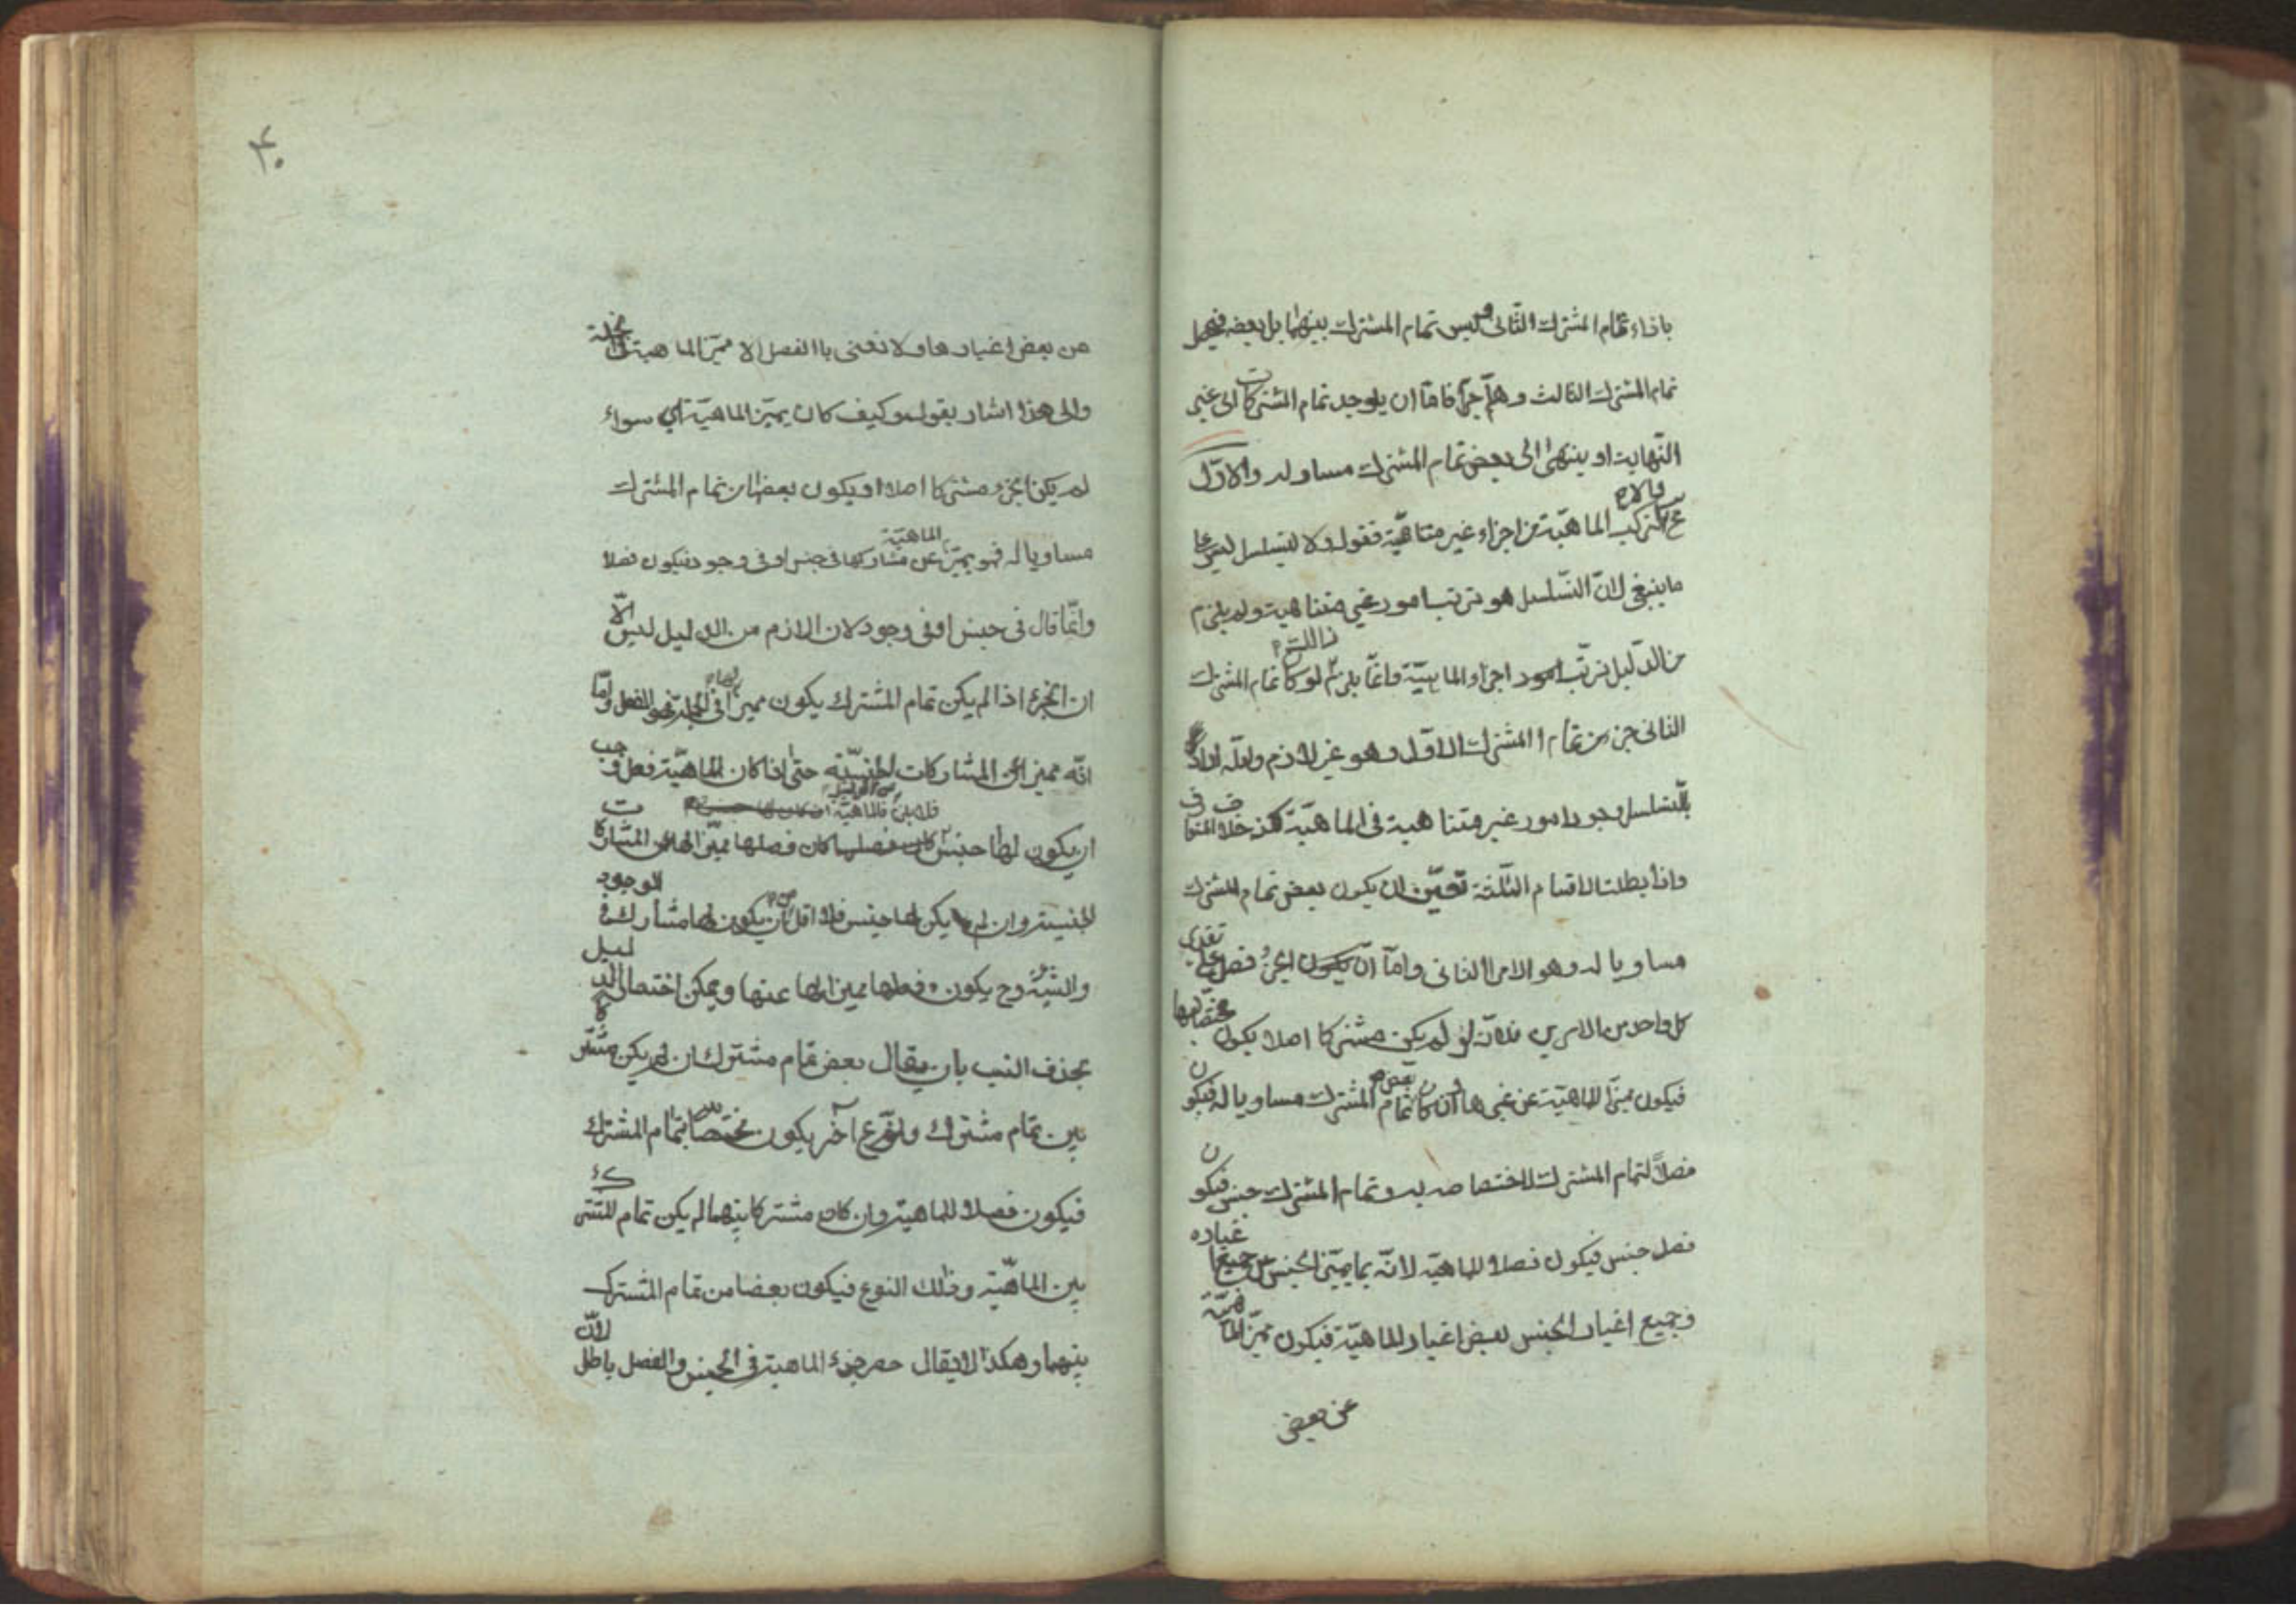 بازاء تمام المشترك الثانى وليس تمام المشترك بينهما بل بعضه فيحصل
تمام المشترك الثالث وهلم جرا فاما ان يوجد تمام المشتركات الى غير
النهاية او ينتهى الى بعض تمام المشترك مساو له والاول
مح والا لتركب الماهية من اجزاء غير متناهية فقوله ولا يتسلسل ليس على
ما ينبغى لان التسلسل هو ترتب امور غير متناهية ولم يلزم
من الدليل ترتب امور اجزاء الماهية وانما يلزم ذلك لو كان تمام المشترك
الثانى جزء من تمام المشترك الاول وهو غير لازم ولعله اراد
بالتسلسل وجود امور غير متناهية فى الماهية لكنه خلاف المتعارف
واذا بطلت الاقسام الثلثة تعين ان يكون بعض تمام المشترك
مساويا له وهو الامر الثانى واما ان الجزء فصل على تقدير
كل واحد من الامرين فلانه لو لم يكن مشتركا اصلا يكون مختصا بها
فيكون مميزا للماهية عن غيرها وان كان بعض تمام المشترك مساويا له فيكون
فصلا لتمام المشترك لاختصاصه به وتمام المشترك جنس فيكون
فصل جنس فيكون فصلا للماهية لانه لما يميز الجنس عن جميع اغياره
وجميع اغيار الجنس بعض اغيار الماهية فيكون مميز الماهية
عن بعض
٣٠
عن بعض اغيارها ولا نعنى بالفصل الا مميز الماهية فى الجملة
والى هذا اشار بقوله وكيف كان يميز الماهية اى سواء
لم يكن الجزء مشتركا اصلا او يكون بعضا من تمام المشترك
مساويا له فهو يميز الماهية عن مشاركها فى جنس او فى وجود فيكون فصلا
وانما قال فى جنس او فى وجود لان اللازم من الدليل ليس الا
ان الجزء اذا لم يكن تمام المشترك يكون مميزا لها فى الجملة وهو الفصل واما
انه مميز عن المشاركات الجنسية حتى اذا كان للماهية فصل وجب
ان يكون لها جنس فلا يلزم فالماهية ان كان فصلها مميزا لها عن المشاركات
الجنسية وان لم يكن لها جنس فلا اقل من ان يكون لها مشارك فى الوجود
والشيئية وح يكون فصلها مميزا لها عنها ويمكن اختصار الدليل
بحذف النسب بان يقال بعض تمام مشترك ان لم يكن مشتركا
بين تمام مشترك ونوع آخر يكون مختصا بتمام المشترك
فيكون فصلا للماهية وان كان مشتركا بينهما لم يكن تمام المشترك
بين الماهية وذلك النوع فيكون بعضا من تمام المشترك
بينهما وهكذا لا يقال حصر جزء الماهية فى الجنس والفصل باطل لان